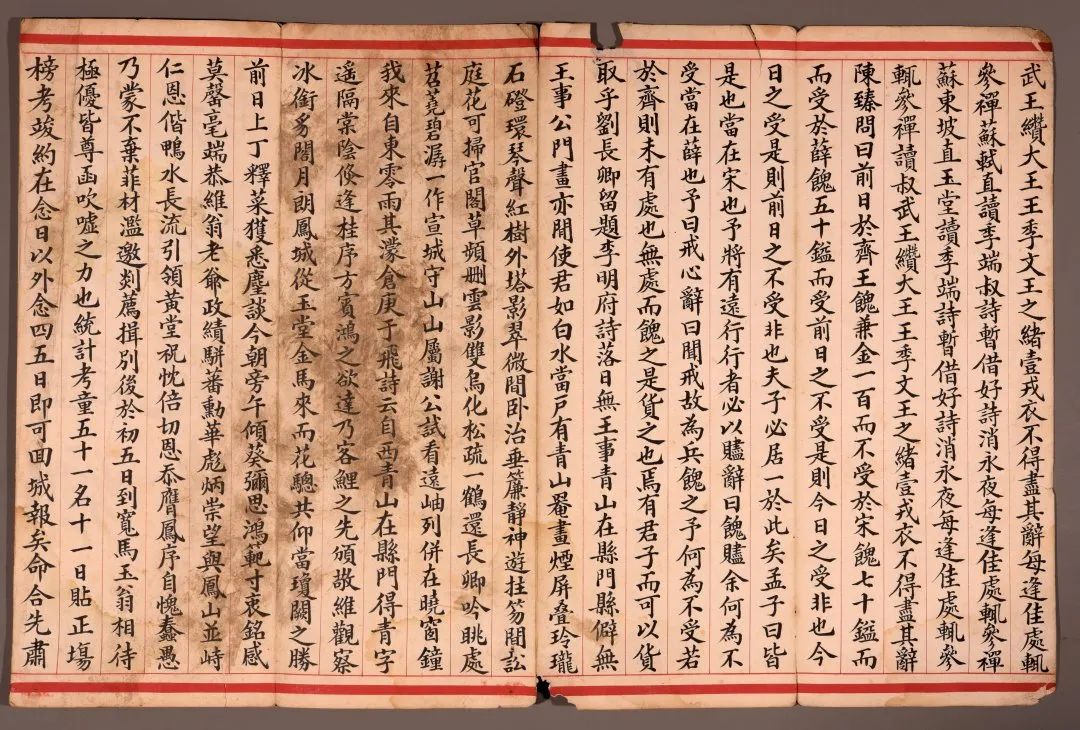 武王纘大王王季文王之緒壹戎衣不得盡其辭每逢佳處輒
參禪蘇軾直讀季端叔詩暫借好詩消永夜每逢佳處輒參禪
蘇東坡直玉堂讀李端詩暫借好詩消永夜每逢佳處輒參
輒參禪讀叔武王纘大王王季文王之緒壹戎衣不得盡其辭
陳臻問曰前日於齊王餽兼金一百而不受於宋餽七十鎰而
而受於薛餽五十鎰而受前日之不受是則今日之受非也今
日之受是則前日之不受非也夫子必居一於此矣孟子曰皆
是也當在宋也予將有遠行行者必以贐辭曰餽贐余何為不
受當在薛也予曰戒心辭曰聞戒故為兵餽之予何為不受若
於齊則未有處也無處而餽之是貨之也焉有君子而可以貨
取乎劉長卿留題李明府詩落日無王事青山在縣門縣僻無
王事公門晝亦閒使君如白水當戶有青山罨畫煙屏叠玲瓏
石磴環琴聲紅樹外塔影翠微間卧治垂簾靜神遊拄笏閒訟
庭花可掃官閣草頻刪雲影雙鳧化松疏一鶴還長卿吟眺處
苕蕘碧潺一作宣城守山山屬謝公試看遠岫列併在曉窗鐘
我來自東零雨其濛倉庚于飛詩云自西青山在縣門得青字
遥隔棠陰倏逢桂序方賓鴻之欲達乃客鯉之先頒敬維觀察
冰銜豸閣月朗鳳城從玉堂金馬來而花驄共仰當瓊闕之勝
前日上丁釋菜獲悉麈談今朝旁午傾葵彌思鴻範寸衷銘感
莫罄毫端恭維翁老爺政績駢蕃勳華彪炳崇望與鳳山並峙
仁恩偕鴨水長流引領黃堂祝忱倍切恩忝膺鳳序自愧蠢愚
乃蒙不棄菲材濫邀剡薦揖別後於初五日到寬馬玉翁相待
極優皆尊函吹噓之力也統計考童五十一名十一日貼正塲
榜考竣約在念日以外念四五日即可回城報矣命合先肅